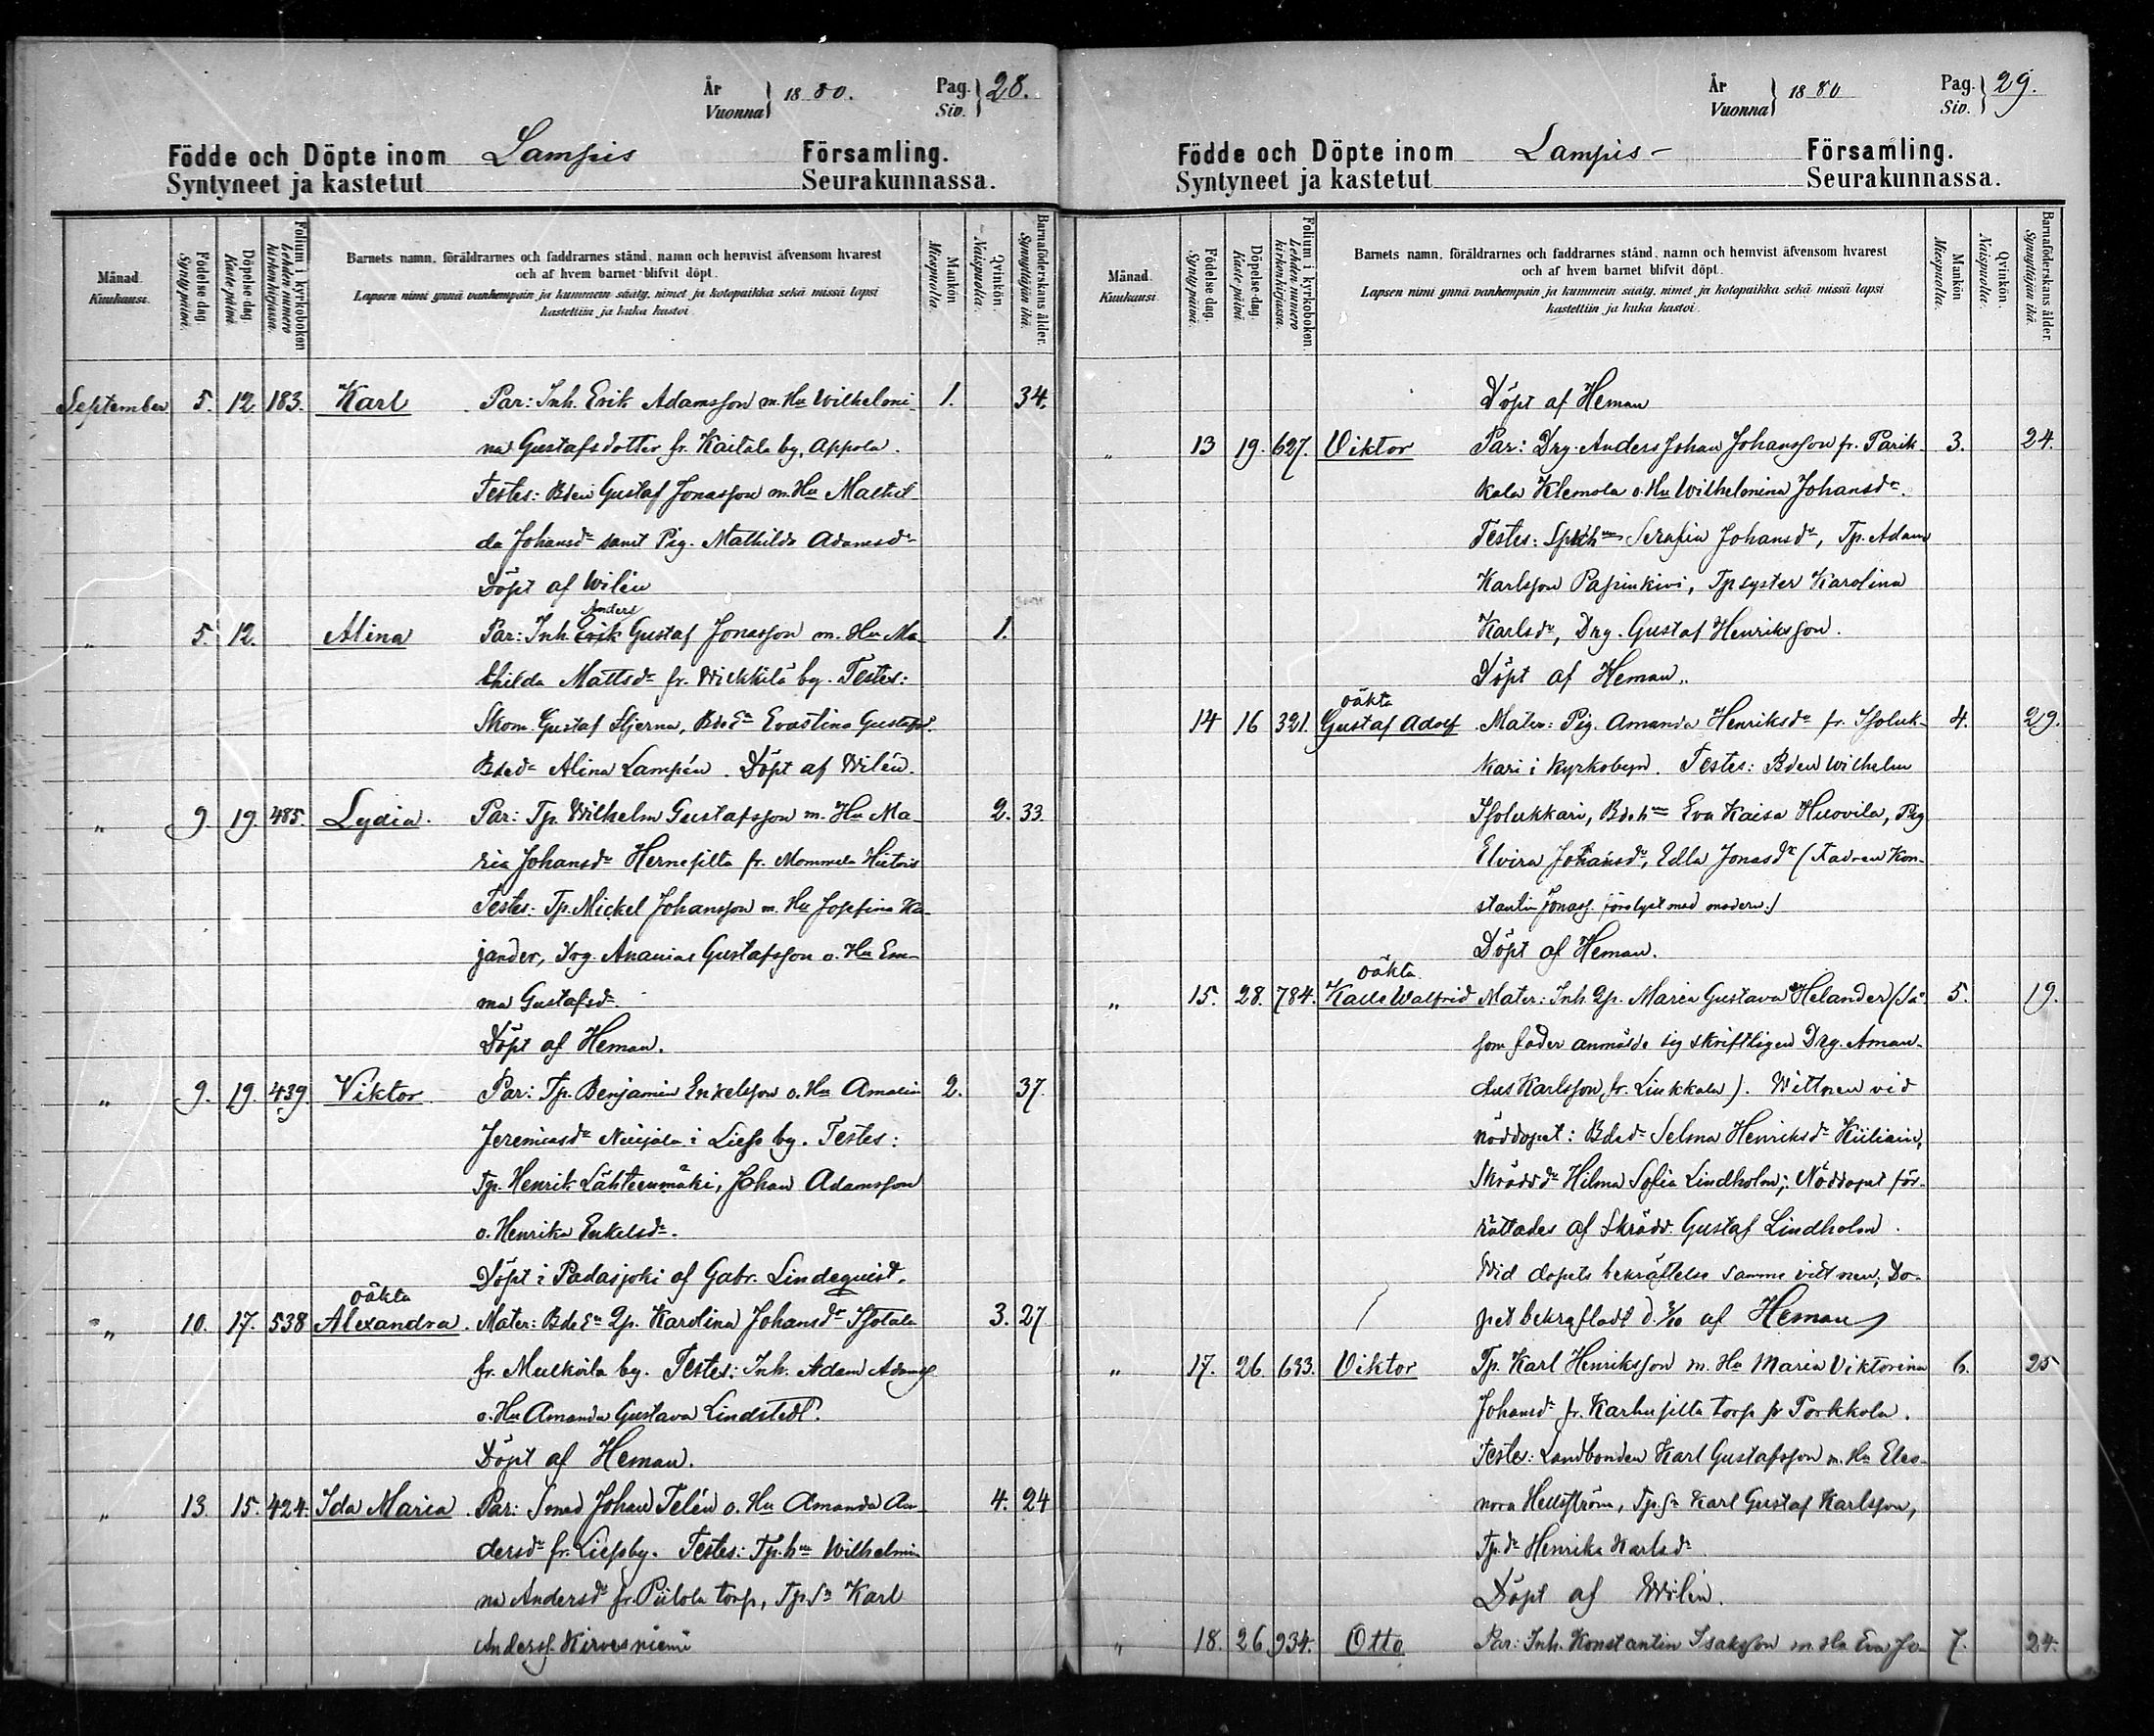 År
Vuonna } 1880.
Pag.
Siv. } 28.
Födde och Döpte inom Lampis Församling.
Syntyneet ja kastetut Seurakunnassa.
Månad.
Kuukausi.
Födelse dag.
Synty päinä.
Döpelse dag.
Kaste päinä.
Folium i kyrkoboken
Lehden numero
kirkonkirjassa.
Barnets namn, föräldrarnes och faddrarnes stånd, namn och hemvist äfvensom hvarest
och af hvem barnet blifvit döpt.
Lapsen nimi ynnä vanhempain ja kummein sääty, nimet ja kotopaikka sekä missä lapsi
kastettiin ja kuka kastoi.
Mankön.
Miespuolia.
Qvinkön.
Naispuolia.
Barnaföderskans ålder.
Synnyttäjän ikä.
September 5. 12. 183. Karl Par: Inh. Erik Adamsson m. Hu Wilhelmi- 1. 34.
na Gustafsdotter fr. Kaitala by, Appola.
Testes: Bden Gustaf Jonasson m. Hu Mathil-
da Johansdr samt Pig. Mathilda Adamsdr
Döpt af Wilén
Anders
" 5. 12. Alina Par: Inh. Erik Gustaf Jonasson m. Hu Ma- 1.
thilda Mattsdr fr. Wickkilä by. Testes:
Skom. Gustaf Stjerna, Bde Ea Evastina Gustafsd.
Bdedr Alina Lampén. Döpt af Wilén.
" 9 19. 485. Lydia. Par: Tp. Wilhelm Gustafsson m. Hu Ma- 2. 33
ria Johansdr Hernesilta fr. Mommila
Testes: Tp. Mickel Johansson m. Hu Josefina Ka-
jander, Drg. Ananias Gustafsson o. Hu Em-
ma Gustafsdr.
Döpt af Heman.
" 9. 19. 439. Viktor. Par: Tp. Benjamin Enkelsson o. Hu Amalia 2. 37.
Jeremiasdr i Lieso by. Testes:
Tp. Henrik Lähteenmäki, Johan Adamsson
o. Henrika Enkelsdr.
Döpt i Padasjoki af Gabr. Lindequist.
oäkta
" 10. 17. 538 Alexandra. Mater: Bde Ea Qp. Karolina Johansdr Isotalo 3. 27
fr. Mulkoila by. Testes: Inh. Adam Adamss
o. Hu Amanda Gustava Lindstedt.
Döpt af Heman.
" 13. 15. 424. Ida Maria. Par: Smed Johan Telén o. Hu Amanda An- 4. 24
dersdr fr. Liesoby. Testes: Tp.hu Wilhelmi-
na Andersdr fr. Piilola torp, Tp. Sn Karl
Anderss. Kirvesniemi
År
Vuonna } 1880
Pag.
Siv. } 29.
Födde och Döpte inom Lampis- Församling.
Syntyneet ja kastetut Seurakunnassa.
Månad.
Kuukausi.
Födelse dag.
Synty päinä.
Döpelse-dag.
Kaste päinä.
Folium i kyrkoboken.
Lehden numero
kirkonkirjassa.
Barnets namn, föräldrarnes och faddrarnes stånd, namn och hemvist äfvensom hvarest
och af hvem barnet blifvit döpt.
Lapsen nimi ynnä vanhempain ja kummein sääty, nimet ja kotopaikka sekä missä lapsi
kastettiin ja kuka kastoi.
Mankön.
Miespuolia.
Qvinkön.
Naispuolia.
Barnaföderskans ålder.
Synnyttäjän ikä.
Döpt af Heman
" 13 19. 627. Viktor Par: Drg. Anders Johan Johansson fr. Parik- 3. 24.
kala Klemola o. Hu Wilhelmina Johansdr.
Testes: Serafia Johansdr, Tp. Adam
Karlsson Papinkivi, Tpsyster Karolina
Karlsdr, Drg. Gustaf Henriksson.
Döpt af Heman.
oäkta
14 16 321. Gustaf Adolf Mater: Pig. Amanda Henriksdr fr. Isoluk- 4. 29.
kari i kyrkobyn. Testes: Bden Wilhelm
Isolukkari, Bdehu Eva Kaisa Huovila, Pig
Elvira Johansdr, Edla Jonasdr (Fadren Kon-
stantin Jonass. förolyst med modern.)
Döpt af Heman.
oäkta
" 15. 28. 784. Kalle Walfrid Mater: Inh. Qp. Maria Gustava Helander (Så- 5. 19.
som fader anmälde sig skriftligen Drg. Aman-
dus Karlsson, fr. Liukkala). Wittnen vid
nöddopet: Bdedr Selma Henriksdr
Skräddr Hilma Sofia Lindholm; Nöddopet för-
rättades af Skrädd. Gustaf Lindholm.
Wid dopets bekräftelse samma vittnen; Do-
pet bekräftadt d. 3/10 af Heman
" 17. 26. 633. Viktor Tp. Karl Henriksson m. Hu Maria Viktorina 6. 25
Johansdr fr. Karhusilta torp på Porkkola.
Testes: Landbonden Karl Gustafsson m. Hu Eleo-
nora Hellström, Tp. Sn Karl Gustaf Karlsson,
Tp. dr Henrika Karlsdr
Döpt af Wilén.
" 18. 26. 934. Otto Par: Inh. Konstantin Isaksson m. Hu Eva Jo- 7. 24.